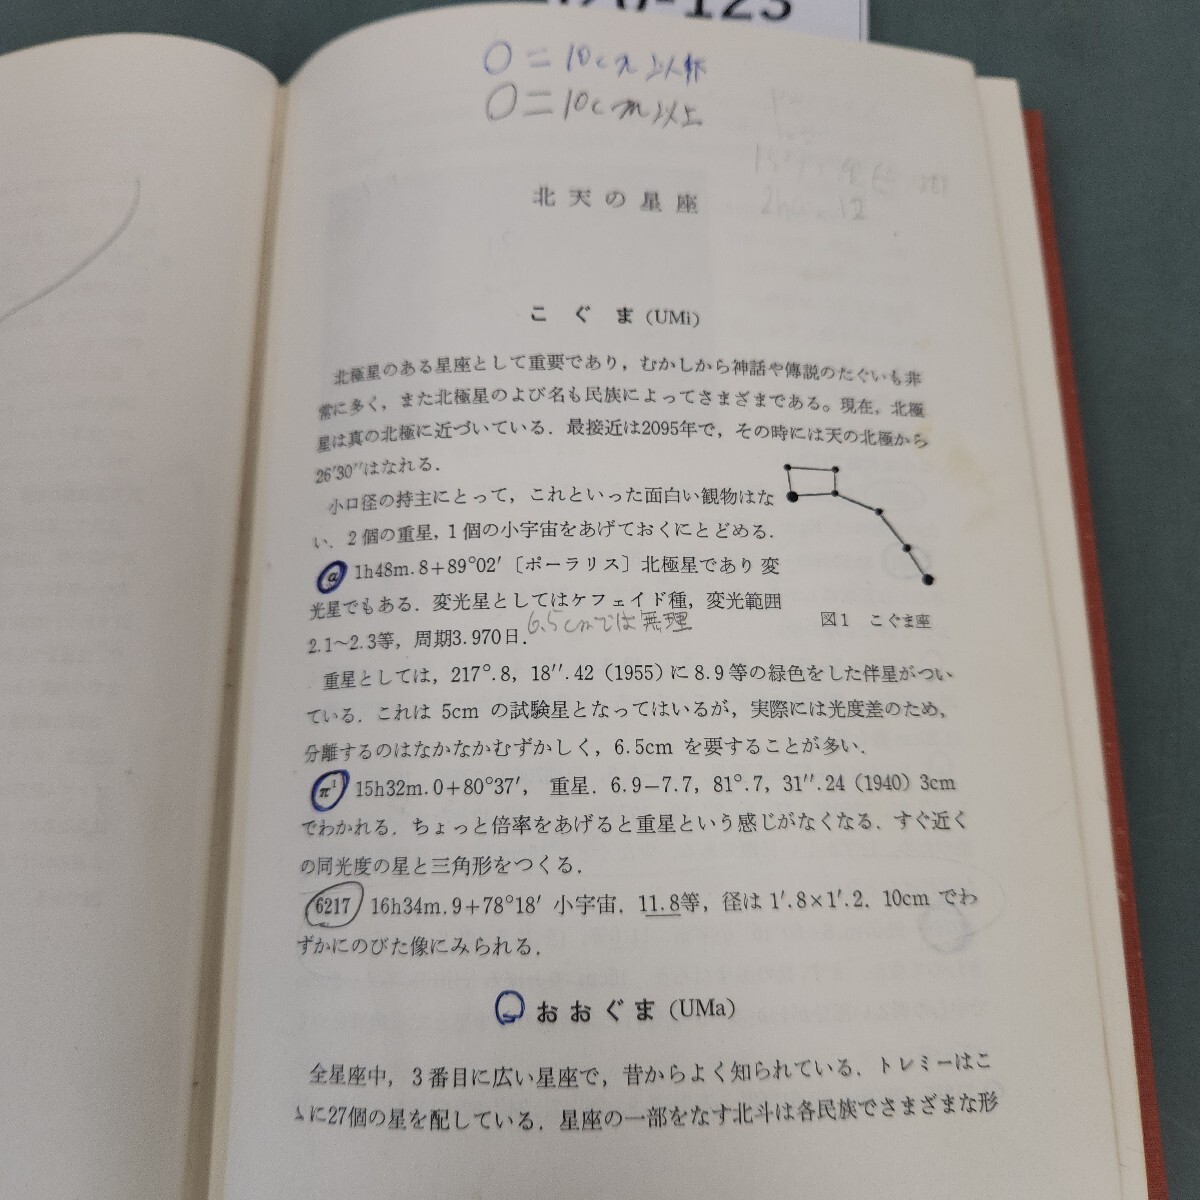 -123
〇＝10cm以下
〇＝10cm以上
北天の星座
こぐま (UMi)
北極星のある星座として重要であり，むかしから神話や傳説のたぐいも非
常に多く，また北極星のよび名も民族によってさまざまである。現在，北極
星は真の北極に近づいている．最接近は2095年で，その時には天の北極から
26′30″はなれる．
小口径の持主にとって，これといった面白い観物はな
い．2個の重星，1個の小宇宙をあげておくにとどめる．
α 1h48m.8+89°02′〔ポーラリス〕北極星であり変
光星でもある．変光星としてはケフェイド種，変光範囲
2.1〜2.3等，周期3.970日．
6.5cmでは無理
図1 こぐま座
重星としては，217°.8，18″.42（1955）に8.9等の緑色をした伴星がつい
ている．これは 5cm の試験星となってはいるが，実際には光度差のため，
分離するのはなかなかむずかしく，6.5cm を要することが多い．
π¹ 15h32m.0+80°37′， 重星．6.9−7.7，81°.7，31″.24（1940）3cm
でわかれる．ちょっと倍率をあげると重星という感じがなくなる．すぐ近く
の同光度の星と三角形をつくる．
6217 16h34m.9+78°18′ 小宇宙．11.8等，径は 1′.8×1′.2．10cm でわ
ずかにのびた像にみられる．
おおぐま (UMa)
全星座中，3番目に広い星座で，昔からよく知られている．トレミーはこ
に27個の星を配している．星座の一部をなす北斗は各民族でさまざまな形